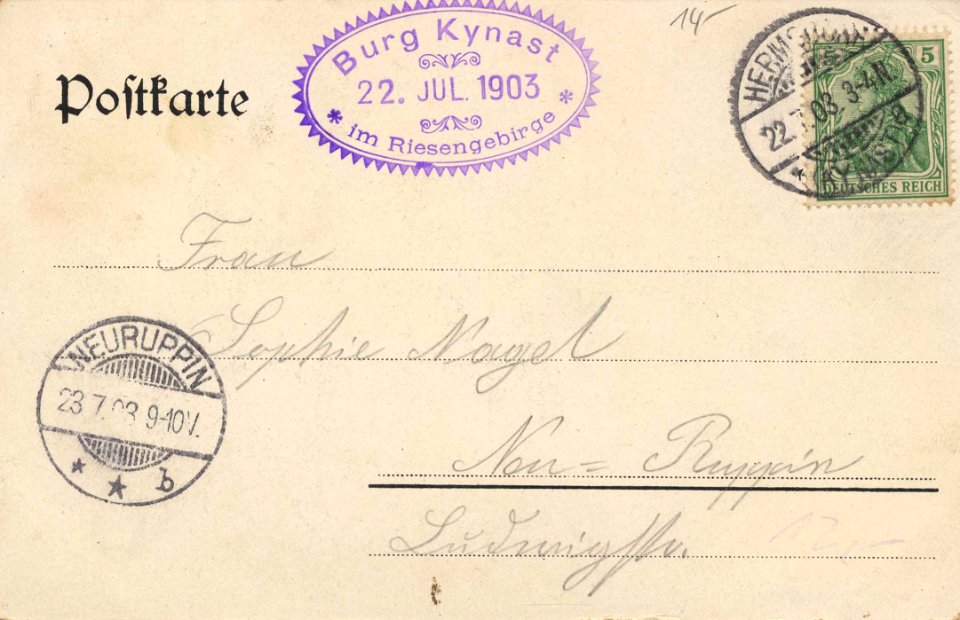 14
Postkarte
Burg Kynast
22. JUL. 1903
* im Riesengebirge *
5
22.7.03. 3-4N.
DEUTSCHES REICH
Frau
Sophie Nagel
NEURUPPIN
23.7.03 9-10V.
* * b
Neu=Ruppin
Ludwigstr.